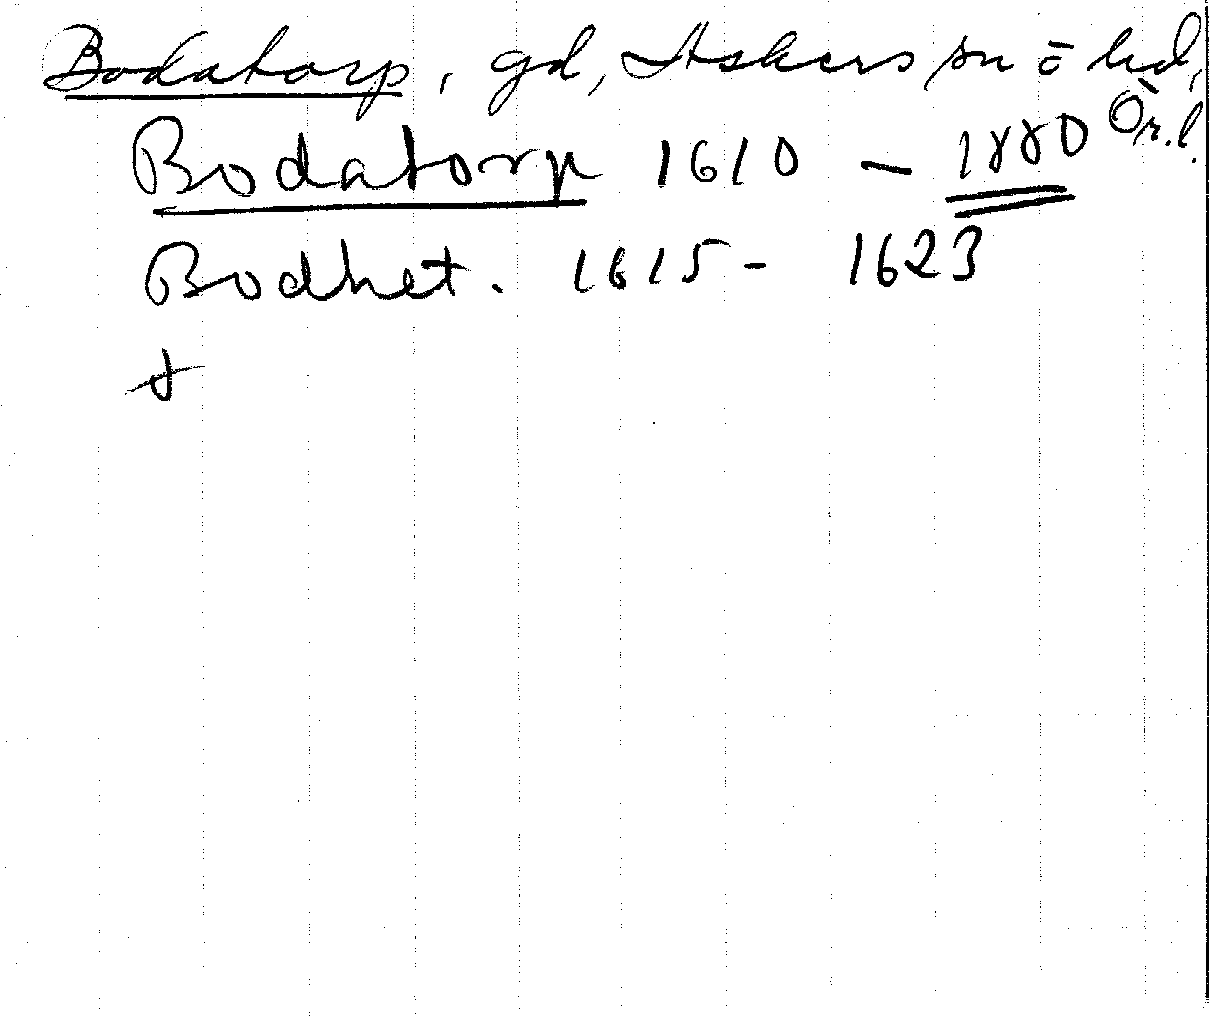 Bodatorp, gd, Askers sn = hd,
Ör. l.
Bodatorp 1610 – 1880
Bodhet. 1615 - 1623